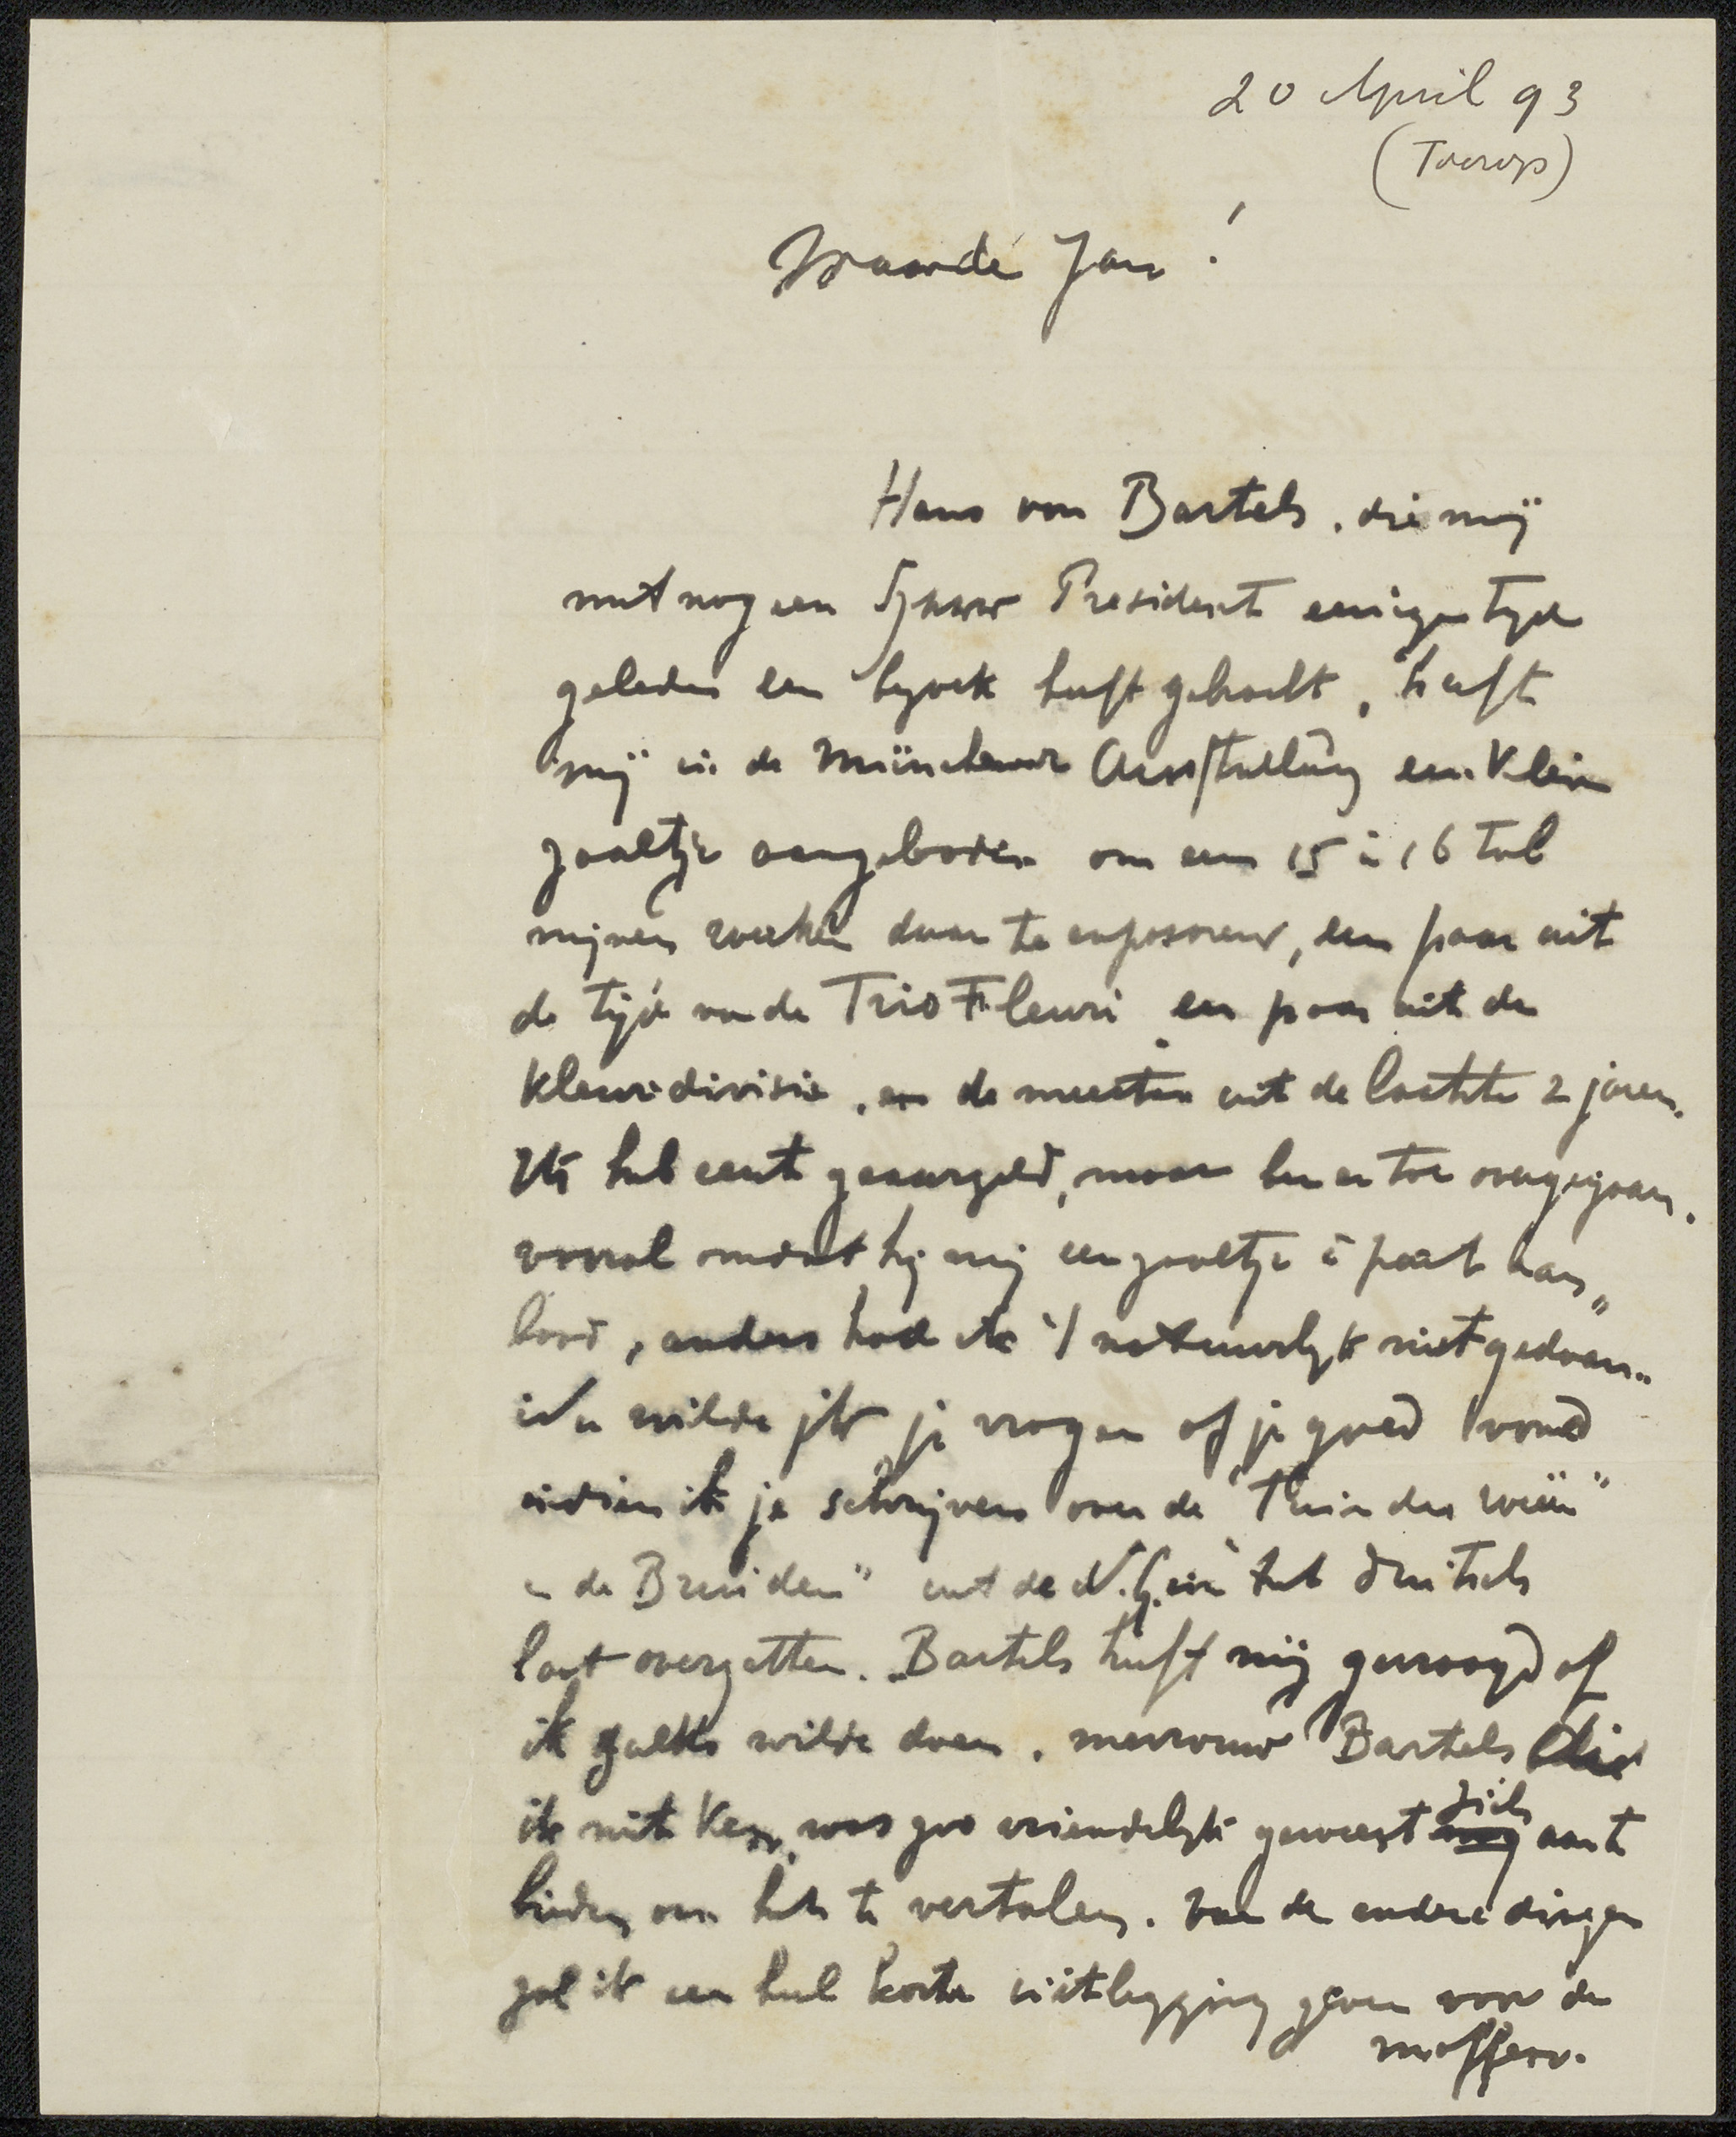 20 April 93
(Toorop)
Waarde Jan!
Hans von Bartels, die mij
met nog een Heer President eenigen tijd
geleden een bezoek heeft gebracht, heeft
mij in de Münchener Ausstellung een klein
zaaltje aangeboden om een 15 à 16 tal
mijner werken daar te exposeren, een paar uit
de tijd van de Trio Fleuri een paar uit de
kleurdivisie, en de meesten uit de laatste 2 jaren.
Ik heb eerst geaarzeld, maar ben er toe overgegaan.
vooral omdat hij mij een zaaltje à part aan„
bood, anders had ik 't natuurlijk niet gedaan..
Nu wilde ik je vragen of je goed vond
indien ik je schrijven over de "Tuin der weën"
en de Bruiden" uit de N.G. in het Duitsch
laat overzetten. Bartels heeft mij gevraagd of
ik zulks wilde doen. mevrouw Bartels die
ik niet ken, was zoo vriendelijk geweest zich aan te
bieden om het te vertalen. Van de andere dingen
zal ik een heel korte uitlegging geven voor de
moffen.